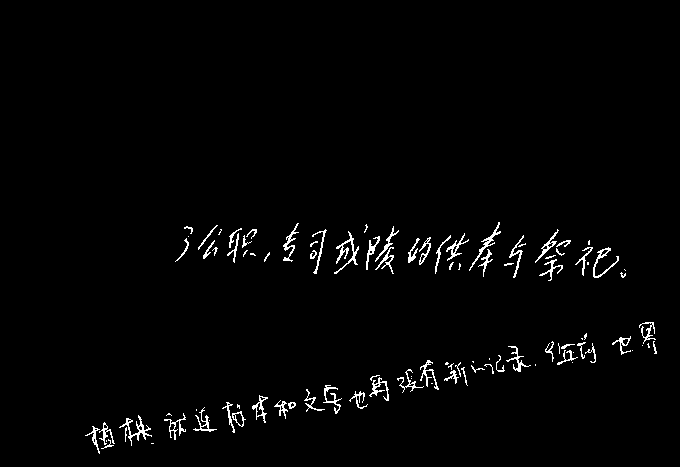 了公职,专司成陵的供奉与祭祀。
植株,就连标本和文字也再没有新的记录.但前世界